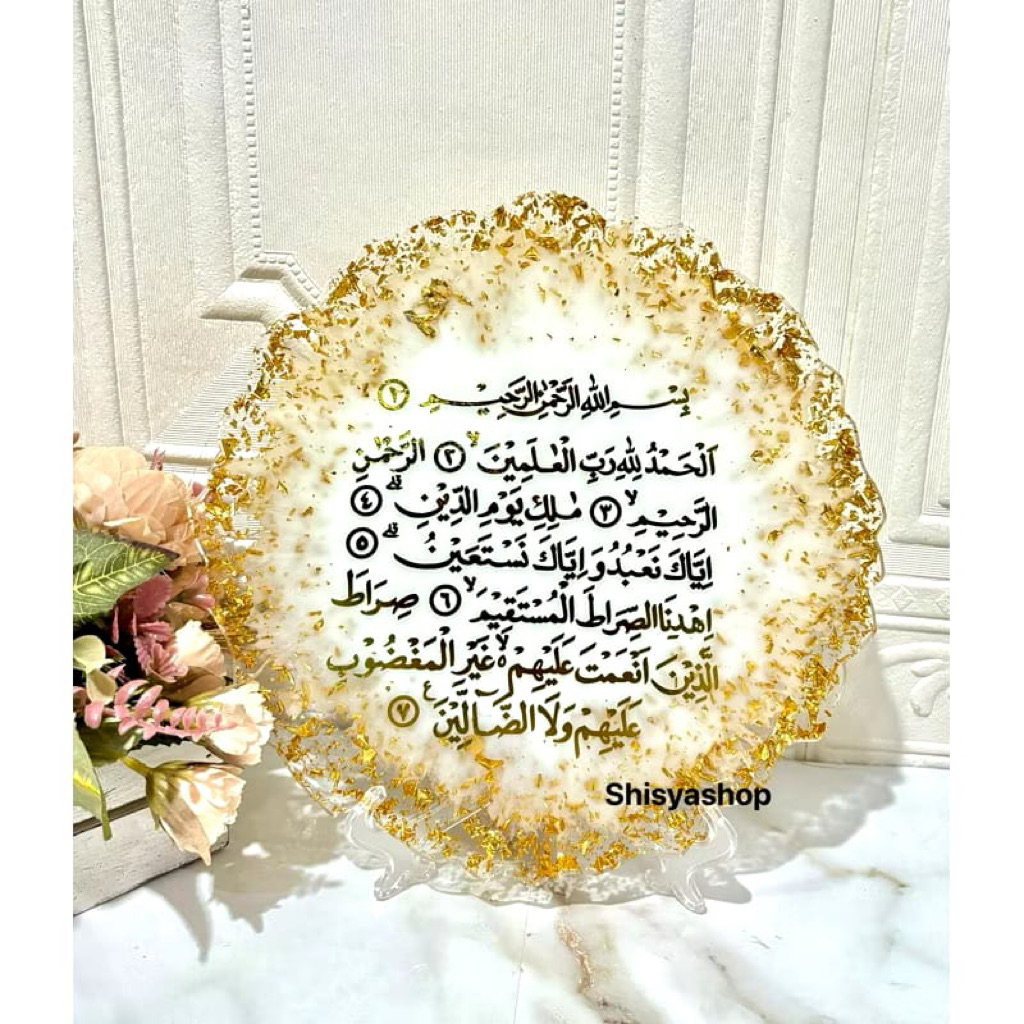 بِسْمِ اللهِ الرَّحْمٰنِ الرَّحِيْمِ ١
اَلْحَمْدُ لِلّٰهِ رَبِّ الْعٰلَمِيْنَ ۙ ٢ الرَّحْمٰنِ
الرَّحِيْمِ ۙ ٣ مٰلِكِ يَوْمِ الدِّيْنِ ۗ ٤
اِيَّاكَ نَعْبُدُ وَاِيَّاكَ نَسْتَعِيْنُ ۗ ٥
اِهْدِنَا الصِّرَاطَ الْمُسْتَقِيْمَ ۙ ٦ صِرَاطَ
الَّذِيْنَ اَنْعَمْتَ عَلَيْهِمْ ەۙ غَيْرِ الْمَغْضُوْبِ
عَلَيْهِمْ وَلَا الضَّاۤلِّيْنَ ࣖ ٧
Shisyashop